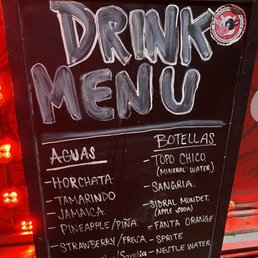 DRINK
MENU
AGUAS
- HORCHATA
- TAMARINDO
- JAMAICA
- PINEAPPLE/PIÑA
- STRAWBERRY/FRESA
BOTELLAS
- TOPO CHICO
(MINERAL WATER)
- SANGRIA
- SIDRAL MUNDET.
(APPLE SODA)
- FANTA ORANGE
- SPRITE
- NESTLE WATER